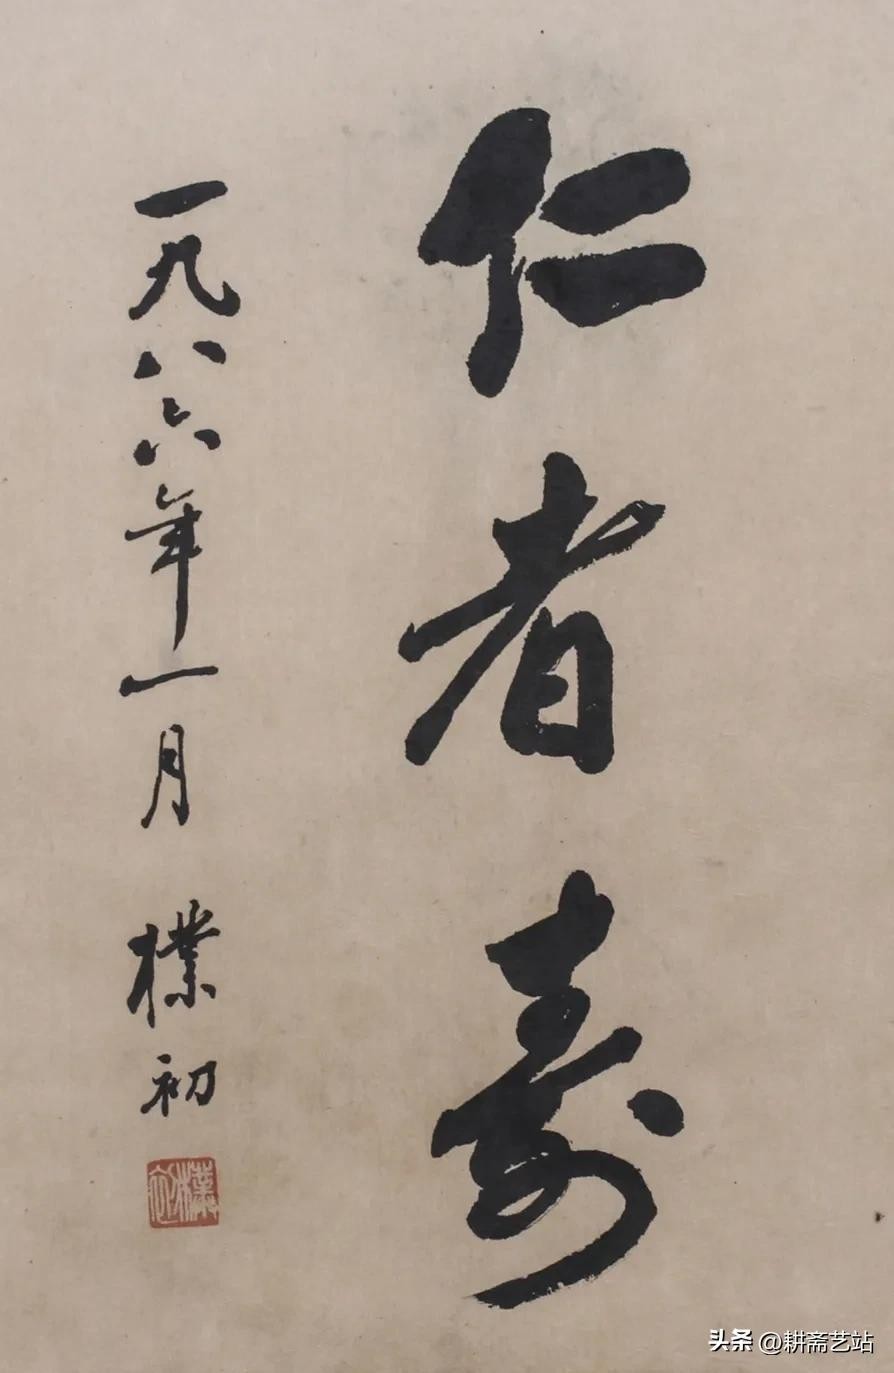 仁者寿
一九八六年一月 樸初
头条 @耕斋艺站